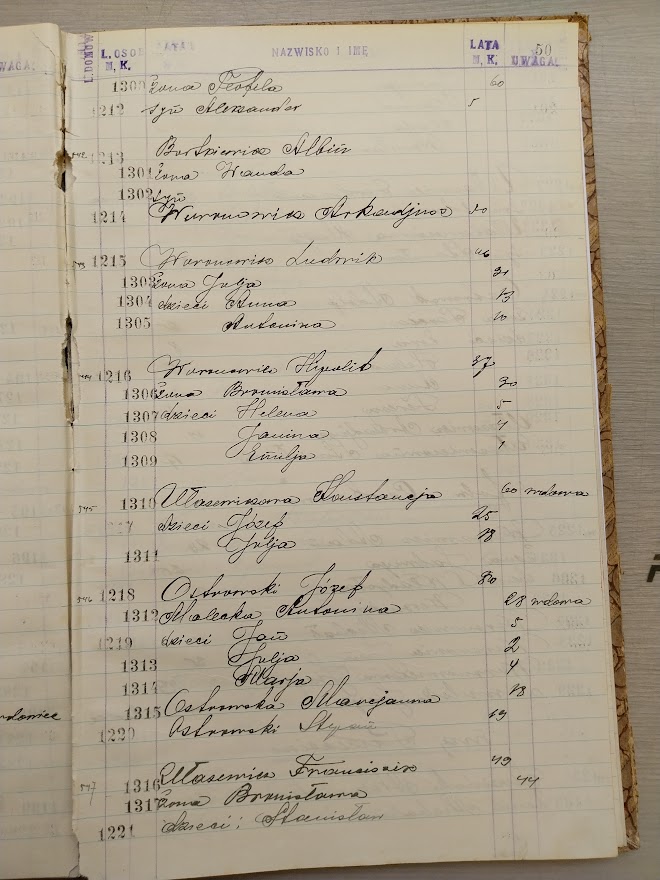 L. DOMÓW L. OSOB M. K. LATA NAZWISKO I IMĘ LATA M. K. 50 UWAGA:
WAGA:
1300 żona Teofila 60
1212 syn Aleksander 5
542 1213 Bortkiewicz Albin
1301 żona Wanda
1302 syn
1214 Woronowicz Arkadjusz 20
543 1215 Woronowicz Ludwik 46
1303 żona Julja 31
1304 dzieci Anna 13
1305 Antonina 10
544 1216 Woronowicz Hypolit 37
1306 żona Bronisława 30
1307 dzieci Helena 5
1308 Janina
1309 Emilja 1
545 1310 Własewiczowa Konstancja 60 wdowa
dzieci Józef 25
1311 Julja 18
546 1218 Ostrowski Józef 80
1312 Malecka Antonina 28 wdowa
1219 dzieci Jan 5
1313 Julja 2
1314 Marja 4
1315 Ostrowska Marcjanna 18
1220 Ostrowski 19
547 1316 Własewicz Franciszek 49
1317 żona Bronisława 44
1221 dzieci: Stanisław